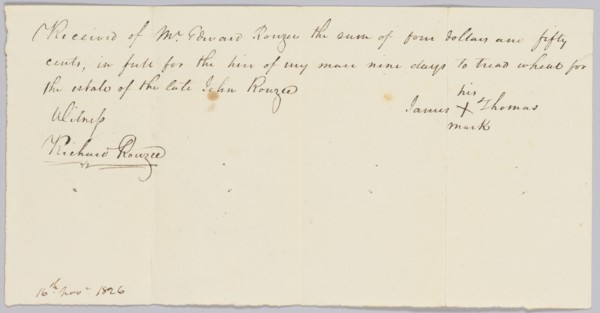 Received of Mr. Edward Rouzee the sum of four dollars and fifty
cents, in full for the hire of my man nine days to tread wheat for
the estate of the late John Rouzee
his
James X Thomas
mark
Witness
Richard Rouzee
16th Novr 1826